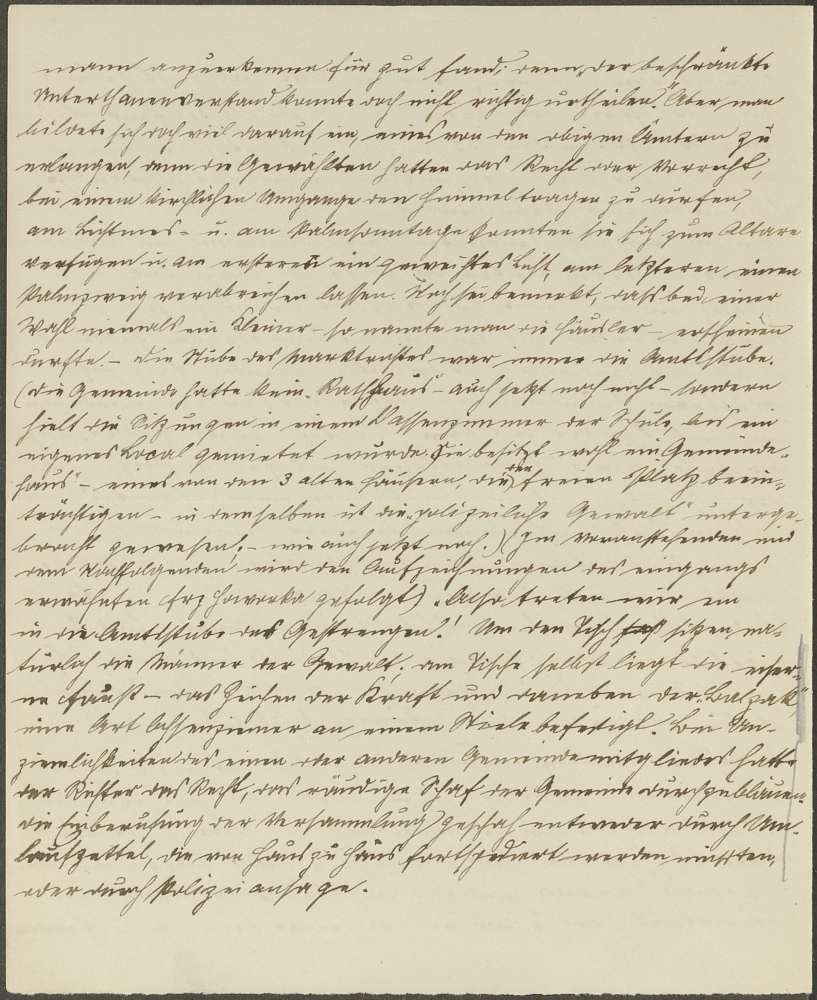 mann anzuerkennen für gut fand; denn „der beschränkte
Unterthanenverstand konnte doch nicht richtig urtheilen“. Aber man
bildete sich doch viel darauf ein, eines von den obigen Ämtern zu
erlangen, denn die Gewählten hatten das Recht oder Vorrecht,
bei einem kirchlichen Umgange den Himmel tragen zu dürfen,
am Lichtmess- u. am Palmsonntage konnten sie sich zum Altare
verfügen u. am ersteren ein geweihtes Licht, am letzteren einen
Palmzweig verabreichen lassen. Noch sei bemerkt, dass bei einer
Wahl niemals ein Kleiner – so nannte man die Häusler – erscheinen
durfte. – Die Stube des Marktrichters war immer die Amtsstube.
(Die Gemeinde hatte kein Rathhaus – auch jetzt noch nicht – sondern
hielt die Sitzungen in einem Klassenzimmer der Schule, bis ein
eigenes Local gemietet wurde. Sie besitzt wohl ein „Gemeinde-
haus“ – eines von den 3 alten Häusern, die den freien Platz beein-
trächtigen – in demselben ist die „polizeiliche Gewalt“ unterge-
bracht gewesen. – wie auch jetzt noch.) (Im Voranstehenden und
dem Nachfolgenden wird den Aufzeichnungen des eingangs
erwähnten Frz Haworka gefolgt). „Also treten wir ein
in die Amtsstube des Gestrengen! Um den Tisch sitzen na-
türlich die Männer der Gewalt; am Tische selbst liegt die eiser-
ne Faust – das Zeichen der Kraft und daneben der „Balzak“,
eine Art Ochsenziemer an einem Stiele befestigt. Bei Un-
ziemlichkeiten des einen oder anderen Gemeindemitgliedes hatte
der Richter das Recht, das räudige Schaf der Gemeinde durchzubläuen.
Die Einberufung der Versammlung geschah entweder durch Um-
laufzettel, die von Haus zu Haus fortspediert werden mussten,
oder durch Polizeiansage.